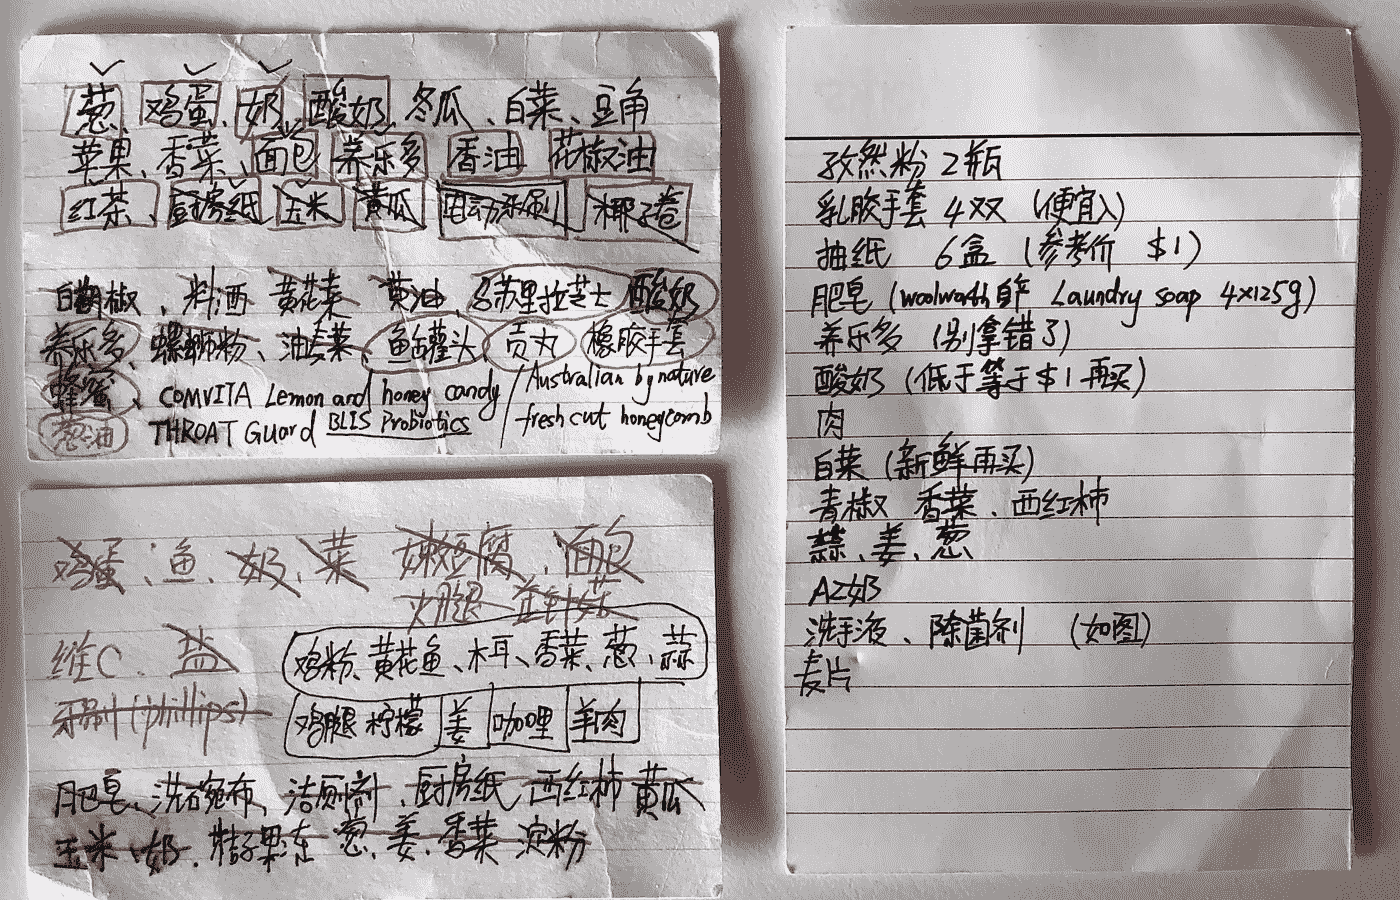 葱、鸡蛋、奶、酸奶、冬瓜、白菜、豆角
苹果、香菜、面包 养乐多 香油 花椒油
红茶、厨房纸 玉米 黄瓜 电动牙刷 椰子卷
白胡椒、料酒 黄花菜 黄油、马苏里拉芝士 酸奶
养乐多、螺蛳粉、油麦菜、鱼罐头、贡丸 橡胶手套
蜂蜜、COMVITA Lemon and honey candy / Australian by nature
葱油 THROAT Guard BLIS Probiotics / fresh cut honeycomb
鸡蛋、鱼、奶、菜 嫩豆腐、面包
火腿 金针菇
维C、盐
鸡粉、黄花鱼、木耳、香菜、葱、蒜
牙刷(phillips)
鸡腿 柠檬 姜 咖喱 羊肉
肥皂、洗碗布、洁厕剂、厨房纸 西红柿 黄瓜
玉米、奶、桔子果冻 葱、姜、香菜 淀粉
孜然粉 2瓶
乳胶手套 4双 (便宜)
抽纸 6盒 (参考价 $1)
肥皂 (woolworth自产 Laundry soap 4×125g)
养乐多 (别拿错了)
酸奶 (低于等于$1再买)
肉
白菜 (新鲜再买)
青椒 香菜、西红柿
蒜、姜、葱
A2奶
洗手液、除菌剂 (如图)
麦片